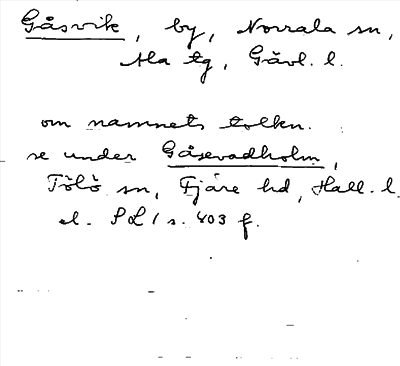 Gåsvik, by, Norrala sn,
Ala tg, Gävl. l.
om namnets tolkn.
se under Gåsevadholm,
Tölö sn, Fjäre hd, Hall. l.
el. SOL 1 s. 403 f.